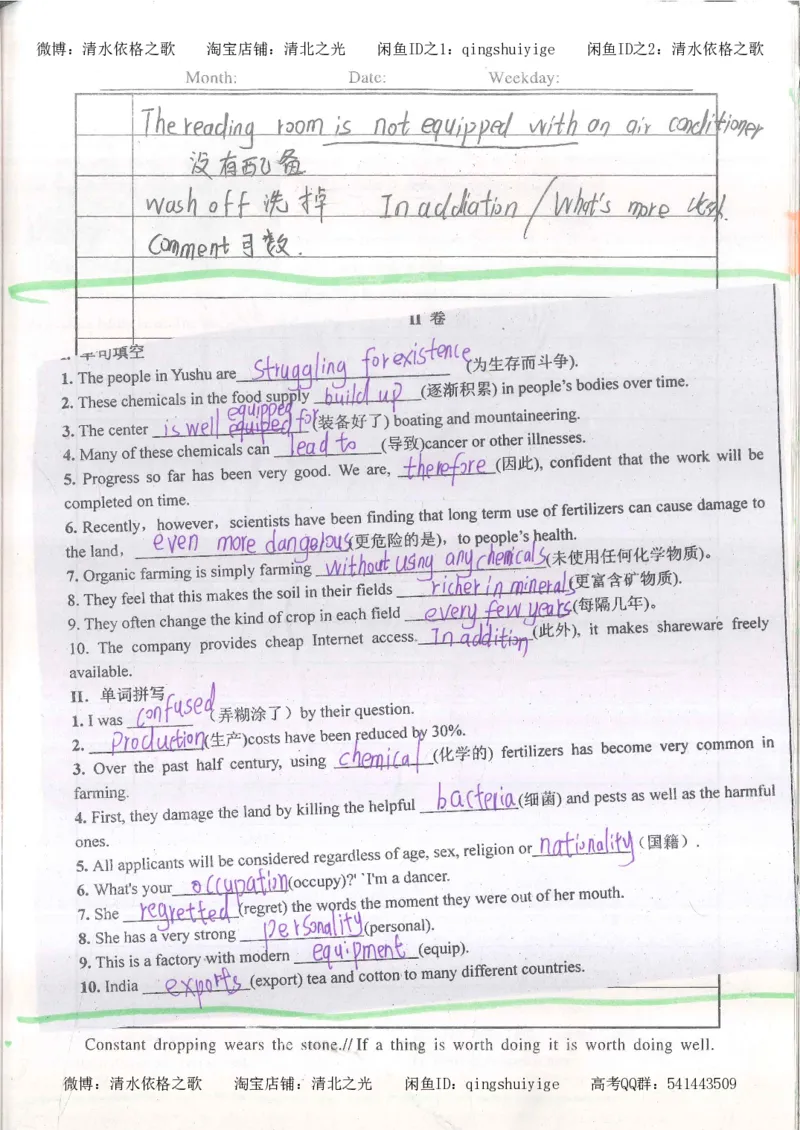 微博：清水依格之歌 淘宝店铺：清北之光 闲鱼ID之1：qingshuiyige 闲鱼ID之2：清水依格之歌
Month: Date: Weekday:
The reading room is not equipped with an air conditioner
没有配备
wash off 洗掉 In addiation / What's more
Comment 可数.
II 卷
单句填空
1. The people in Yushu are struggling for existence (为生存而斗争).
2. These chemicals in the food supply build up (逐渐积累) in people's bodies over time.
equipped
3. The center is well equiped for (装备好了) boating and mountaineering.
4. Many of these chemicals can lead to (导致)cancer or other illnesses.
5. Progress so far has been very good. We are, therefore (因此), confident that the work will be
completed on time.
6. Recently, however, scientists have been finding that long term use of fertilizers can cause damage to
the land, even more dangolous (更危险的是), to people's health.
7. Organic farming is simply farming without using any chemicals (未使用任何化学物质)。
8. They feel that this makes the soil in their fields richer in minerals (更富含矿物质).
9. They often change the kind of crop in each field every few years (每隔几年)。
10. The company provides cheap Internet access. In addition (此外), it makes shareware freely
available.
II. 单词拼写
1. I was confused (弄糊涂了）by their question.
2. Production (生产)costs have been reduced by 30%.
3. Over the past half century, using chemical (化学的) fertilizers has become very common in
farming.
4. First, they damage the land by killing the helpful bacteria (细菌) and pests as well as the harmful
ones.
5. All applicants will be considered regardless of age, sex, religion or nationality (国籍）.
6. What's your occupation (occupy)?' `I'm a dancer.
7. She regretted (regret) the words the moment they were out of her mouth.
8. She has a very strong personality (personal).
9. This is a factory with modern equipment (equip).
10. India exports (export) tea and cotton to many different countries.
Constant dropping wears the stone.//If a thing is worth doing it is worth doing well.
微博：清水依格之歌 淘宝店铺：清北之光 闲鱼ID：qingshuiyige 高考QQ群：541443509